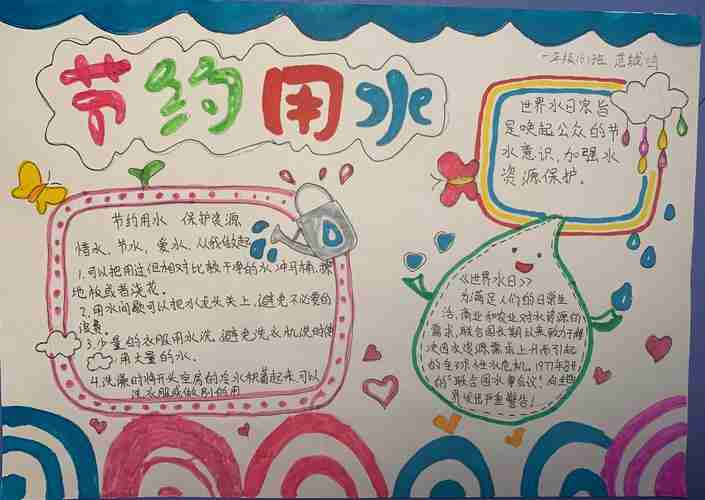 节约用水
一年级(1)班
世界水日宗旨
是唤起公众的节
水意识,加强水
资源保护。
节约用水 保护资源
惜水、节水、爱水、从我做起
1.可以把用过但相对比较干净的水冲马桶、
地板或者浇花。
2.用水间歇可以把水龙头关上,避免不必要的
浪费。
3.少量的衣服用水洗,避免洗衣机洗时使
用大量的水。
4.洗澡时将开头空房的冷水积蓄起来,可以
洗衣服或做别的用
《世界水日》
为满足人们的日常生
活、商业和农业对水资源的
需求,联合国长期以来致力于解
决因水资源需求上升而引起
的全球性水危机。1977年召开
的“联合国水事会议”向全世
界发出严重警告!